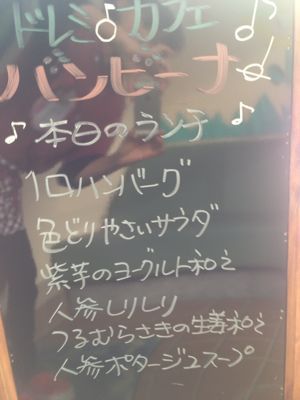 ドレミ♪カフェ
バンビーナ
♪本日のランチ
1口ハンバーグ
色どりやさいサラダ
紫芋のヨーグルト和え
人参しりしり
つるむらさきの生姜和え
人参ポタージュスープ